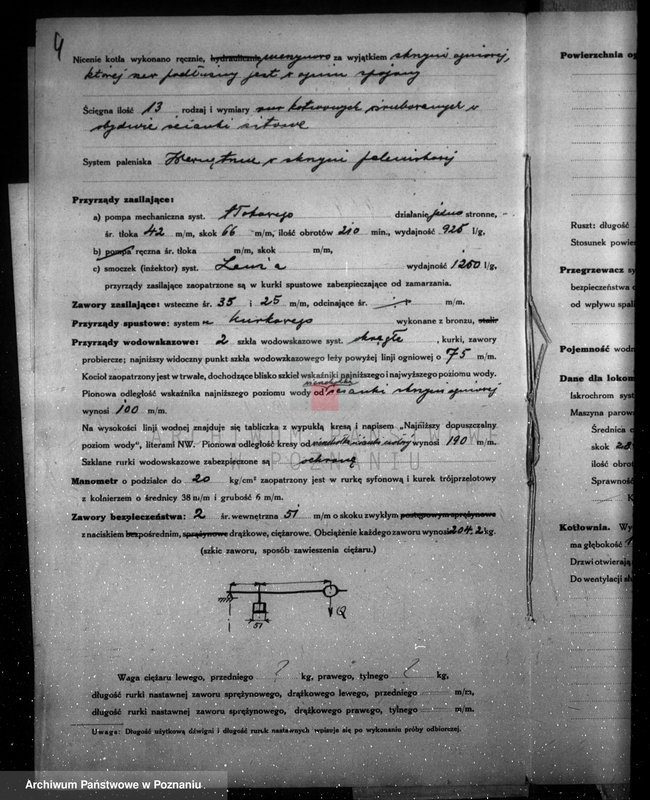 4
Nicenie kotła wykonano ręcznie, hydraulicznie, maszynowo za wyjątkiem skrzyni ogniowej,
której szew podłużny jest w ogniu spojony
Ścięgna ilość 13 rodzaj i wymiary kotwowych śrubowanych w
obydwie ścianki sitowe
System paleniska Wewnętrzne w skrzyni paleniskowej
Przyrządy zasilające:
a) pompa mechaniczna syst. tłokowego działanie jedno stronne,
śr. tłoka 42 m/m, skok 66 m/m, ilość obrotów 210 min., wydajność 925 l/g,
b) pompa ręczna śr. tłoka m/m, skok m/m,
c) smoczek (inżektor) syst. wydajność 1250 l/g,
przyrządy zasilające zaopatrzone są w kurki spustowe zabezpieczające od zamarzania.
Zawory zasilające: wsteczne śr. 35 i 25 m/m, odcinające śr. m/m.
Przyrządy spustowe: system kurkowego wykonane z bronzu, stali
Przyrządy wodowskazowe: 2 szkła wodowskazowe syst. okrągłe, kurki, zawory
probiercze; najniższy widoczny punkt szkła wodowzkazowego leży powyżej linji ogniowej o 75 m/m.
Kocioł zaopatrzony jest w trwałe, dochodzące blisko szkieł wskaźniki najniższego i najwyższego poziomu wody.
Pionowa odległość wskaźnika najniższego poziomu wody od wierzchołka ścianki skrzyni ogniowej
wynosi 100 m/m.
Na wysokości linji wodnej znajduje się tabliczka z wypukłą kresą i napisem „Najniższy dopuszczalny
poziom wody", literami NW. Pionowa odległość kresy od wierzchołka wynosi 190 m/m.
Szklane rurki wodowskazowe zabezpieczone są ochroną
Manometr o podziałce do 20 kg/cm² zaopatrzony jest w rurkę syfonową i kurek trójprzelotowy
z kolnierzem o średnicy 38 m/m i grubość 6 m/m.
Zawory bezpieczeństwa: 2 śr. wewnętrzna 51 m/m o skoku zwykłym postępowym sprężynowe
z naciskiem bezpośrednim, sprężynowe drążkowe, ciężarowe. Obciążenie każdego zaworu wynosi 204.2 kg.
(szkic zaworu, sposób zawieszenia ciężaru.)
Q
51
Waga ciężaru lewego, przedniego ? kg, prawego, tylnego ? kg,
długość rurki nastawnej zaworu sprężynowego, drążkowego lewego, przedniego m/m,
długość rurki nastawnej zaworu sprężynowego, drążkowego prawego, tylnego m/m.
Uwaga: Długość użytkową dźwigni i długość rurek nastawnych wpisuje się po wykonaniu próby odbiorczej.
Powierzchnia og
Ruszt: długość
Stosunek powie
Przegrzewacz sy
bezpieczeństwa o
od wpływu spali
Pojemność wodn
Dane dla lokom
Iskrochron syst
Maszyna parow
Średnica c
skok 28
ilość obrot
Sprawność
K
Kotłownia. Wy
ma głębokość
Drzwi otwierają
Do wentylacji sł
W POZNANIU
Archiwum Państwowe w Poznaniu